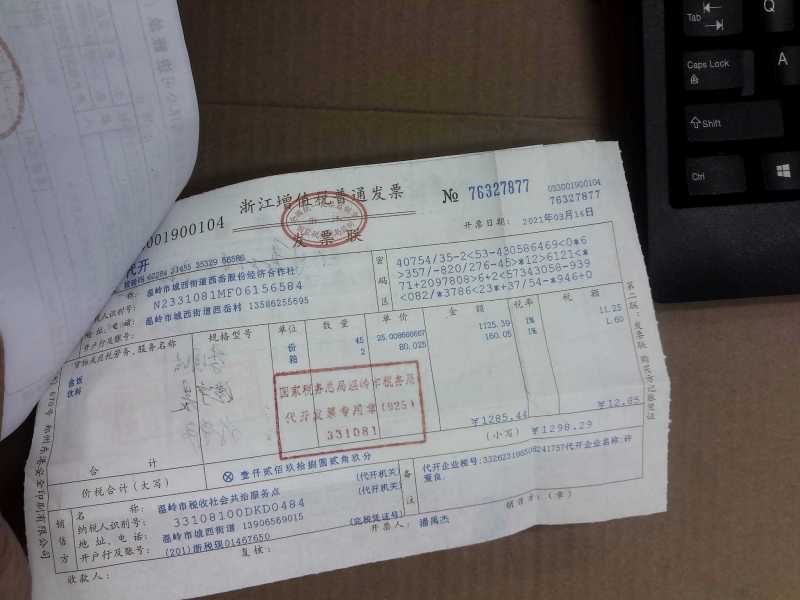 浙江增值税普通发票
发票联
033001900104
№ 76327877
033001900104
76327877
开票日期: 2021年03月16日
代开
温岭市城西街道西岙股份经济合作社
N2331081MF06156584
地址、电话: 温岭市城西街道西岙村 13586255695
开户行及账号:
密码区
40754/35-2<53-430586469<0*6
>357/-820/276-45>*12>6121<*
71+2097808>6+2<57343058-939
<082/*3786<23*+37/54-*946+0
货物或应税劳务、服务名称 规格型号 单位 数量 单价 金额 税率 税额
盒饭 份 45 25.008666667 1125.39 1% 11.25
饮料 箱 2 80.025 160.05 1% 1.60
国家税务总局温岭市税务局
代开发票专用章(025)
331081
合计 ¥1285.44 ¥12.85
价税合计(大写) ⊗壹仟贰佰玖拾捌圆贰角玖分 (小写) ¥1298.29
销售方
名称: 温岭市税收社会共治服务点 (代开机关)
纳税人识别号: 33108100DKD0484 (代开机关)
地址、电话: 温岭市城西街道 13906569015
开户行及账号: (201)浙税现01467650 (完税凭证号)
备注
代开企业名称:许
收款人: 复核: 开票人: 潘禹杰 销售方:(章)
第二联:发票联 购买方记账凭证